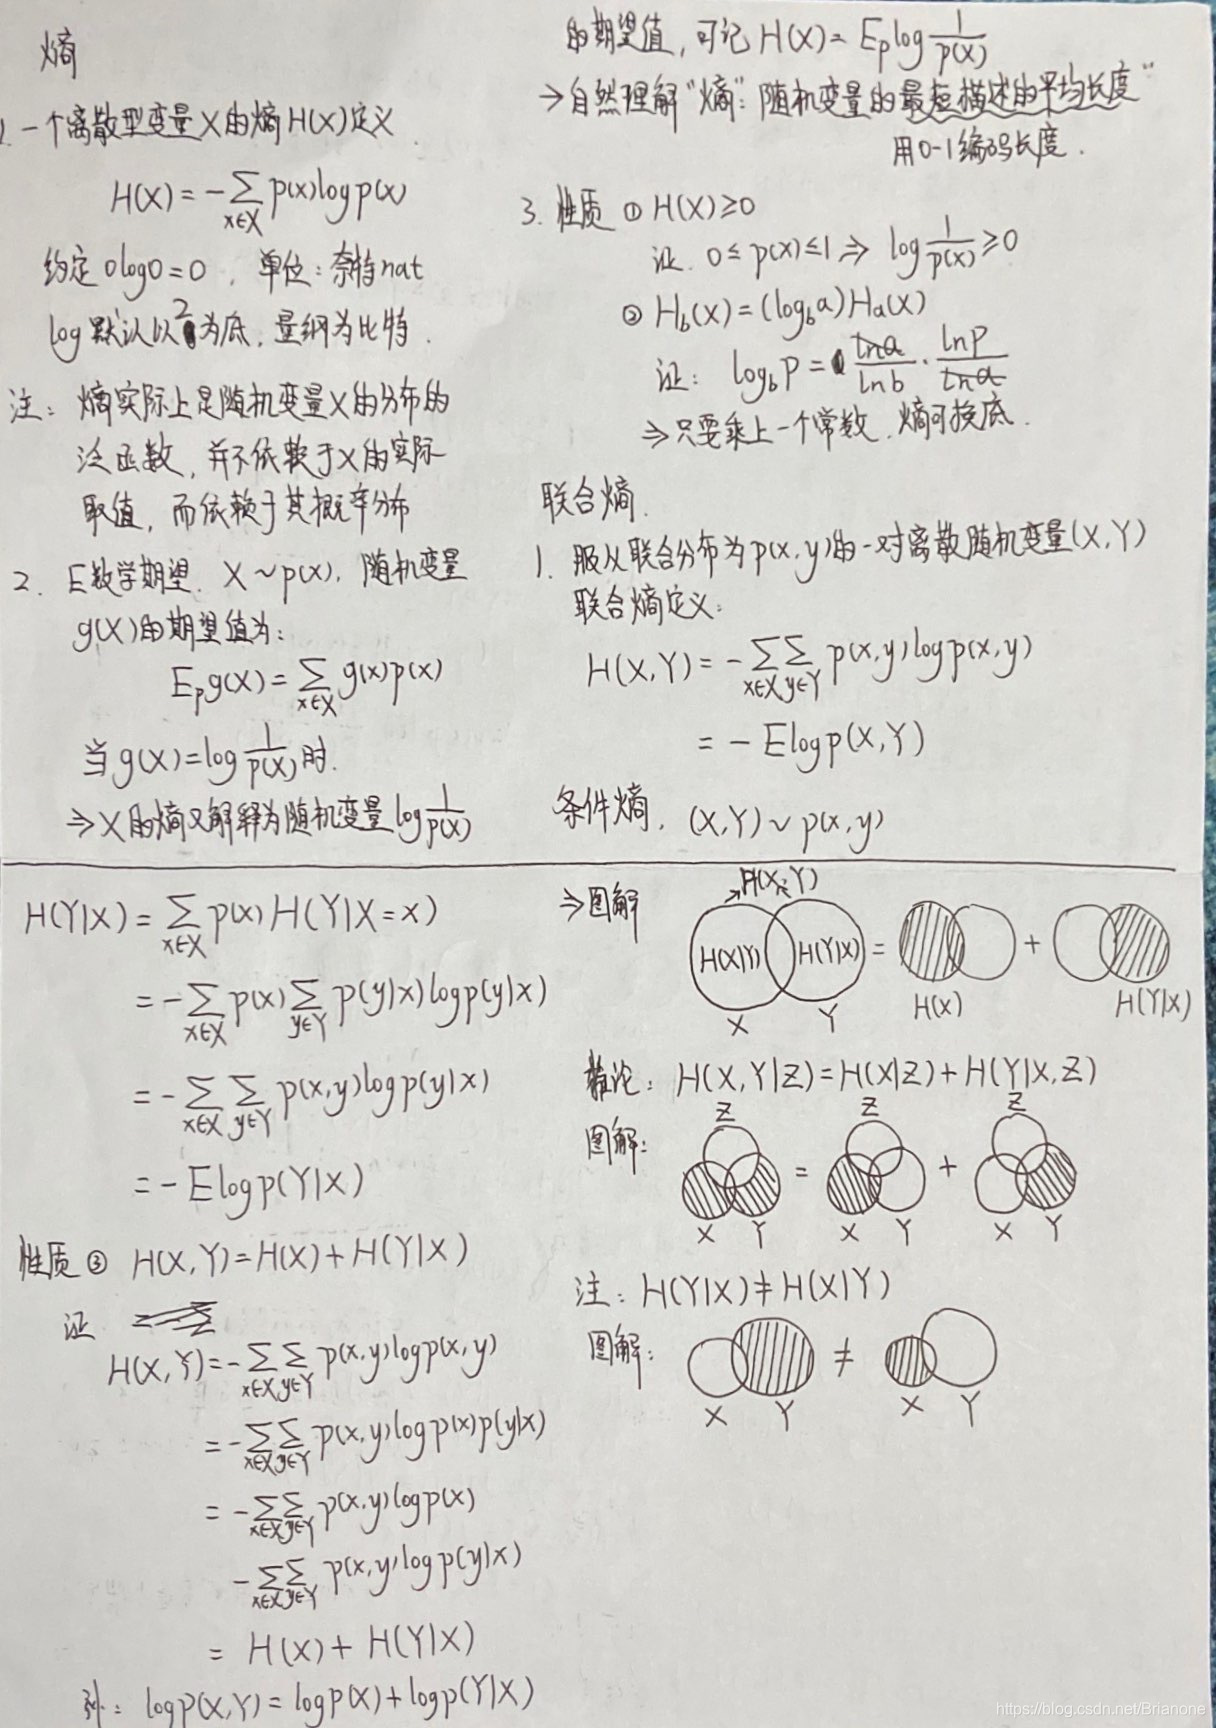 熵
1. 一个离散型变量X的熵H(X)定义
H(X) = -∑ p(x)logp(x)
x∈X
约定 0log0=0 , 单位:奈特nat
log默认以2为底, 量纲为比特.
注: 熵实际上是随机变量X的分布的
泛函数, 并不依赖于X的实际
取值, 而依赖于其概率分布
2. E数学期望. X~p(x), 随机变量
g(X)的期望值为:
Eₚg(X) = ∑ g(x)p(x)
x∈X
当g(X)=log 1/p(X) 时.
⇒ X的熵又解释为随机变量log 1/p(X)
的期望值, 可记 H(X) = Eₚlog 1/p(X)
→ 自然理解"熵": 随机变量的最短描述的平均长度"
用0-1编码长度.
3. 性质 ① H(X)≥0
证. 0≤p(x)≤1 ⇒ log 1/p(x) ≥0
② H_b(X)=(log_b a)H_a(X)
证: log_b p = lna/lnb · lnp/lna
⇒ 只要乘上一个常数, 熵可换底.
联合熵.
1. 服从联合分布为p(x,y)的一对离散随机变量(X,Y)
联合熵定义:
H(X,Y) = -∑∑ p(x,y)logp(x,y)
x∈X y∈Y
= -Elogp(X,Y)
条件熵. (X,Y)~p(x,y)
H(Y|X) = ∑ p(x)H(Y|X=x)
x∈X
= -∑ p(x)∑ p(y|x)logp(y|x)
x∈X y∈Y
= -∑∑ p(x,y)logp(y|x)
x∈X y∈Y
= -Elogp(Y|X)
性质 ③ H(X,Y)=H(X)+H(Y|X)
证
H(X,Y)=-∑∑ p(x,y)logp(x,y)
x∈X y∈Y
=-∑∑ p(x,y)logp(x)p(y|x)
x∈X y∈Y
=-∑∑ p(x,y)logp(x)
x∈X y∈Y
-∑∑ p(x,y)logp(y|x)
x∈X y∈Y
= H(X)+H(Y|X)
: logp(X,Y)=logp(X)+logp(Y|X)
⇒ 图解
H(X|Y) H(Y|X) = +
X Y H(X) H(Y|X)
推论: H(X,Y|Z)=H(X|Z)+H(Y|X,Z)
Z Z Z
图解: = +
X Y X Y X Y
注: H(Y|X)≠H(X|Y)
图解: ≠
X Y X Y
https://blog.csdn.net/Brianone